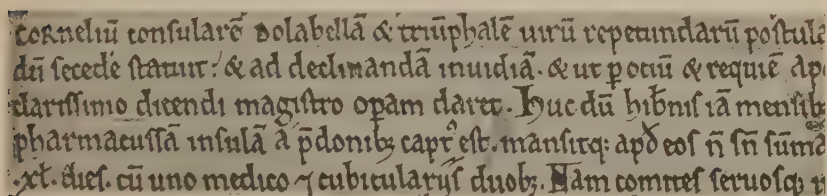 coRneliū conſularē Dolabellā & triūphalē uirū repetundarū poſtula
dū ſecede ſtatuit: & ad declinandā inuidiā. & ut p ociū & requiē Apo
clariſſimo dicendi magiſtro opam daret. Huc dū hibniſ iā menſib
pharmacuſſā inſulā a p̄donibꝫ capt᷒ eſt. manſitq: apđ eoſ ñ ſñ ſūma
.xl. dieſ. cū uno medico ⁊ cubiculariȷſ duobꝫ. Nam comiteſ ſeruoſq;